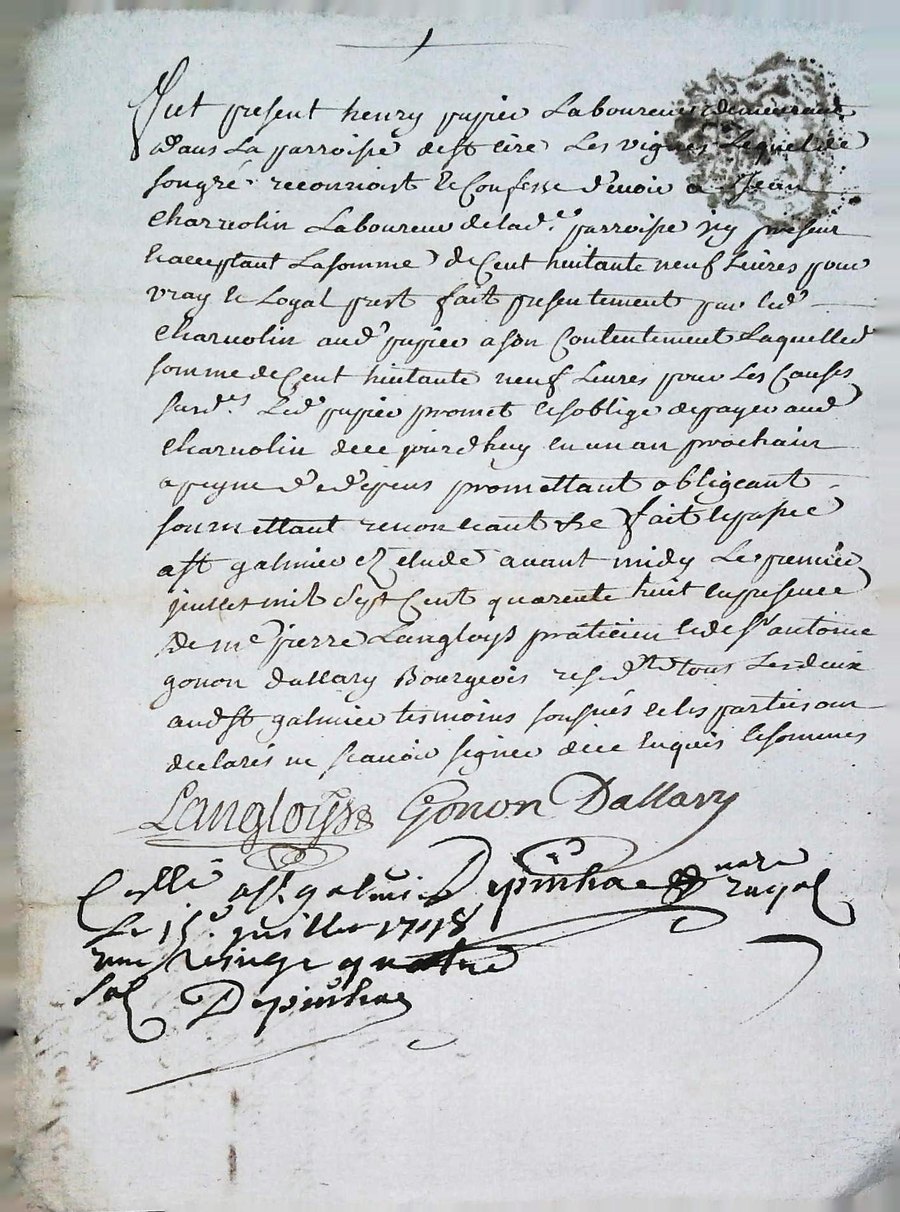 fut present henry papier Laboureur demeurant
dans La parroisse de st cire Les vignes Lequel de
songré reconnoist et Confesse devoir a Jean
Charvolin Laboureur de lad.e parroisse icy present
et acceptant La somme de Cent huitante neuf Livres pour
vray et Loyal prest fait presentement par led.
Charvolin aud. papier a son Contentement Laquelle
somme de Cent huitante neuf Livres pour Les Causes
susd.es Led. papier promet et soblige de payer aud.
Charvolin de ce jourdhuy en un an prochain
a peyne de depens promettant obligeant
soumettant renonceant &c fait et passé
a st galmier ez etude avant midy Le premier
juillet mil Sept Cent quarente huit en presence
de me pierre Langloys praticien et de sr antoine
gonon dallary Bourgeois resid.ts tous Les deux
aud st galmier tesmoins sousnés et les parties ont
declarés ne scavoir signer de ce Enquis et sommés
Langloys Gonon Dallary
Collé a st galmier Depinhac nore royal
Le 15e juillet 1748
reçu vingt quatre
sol Depinhac